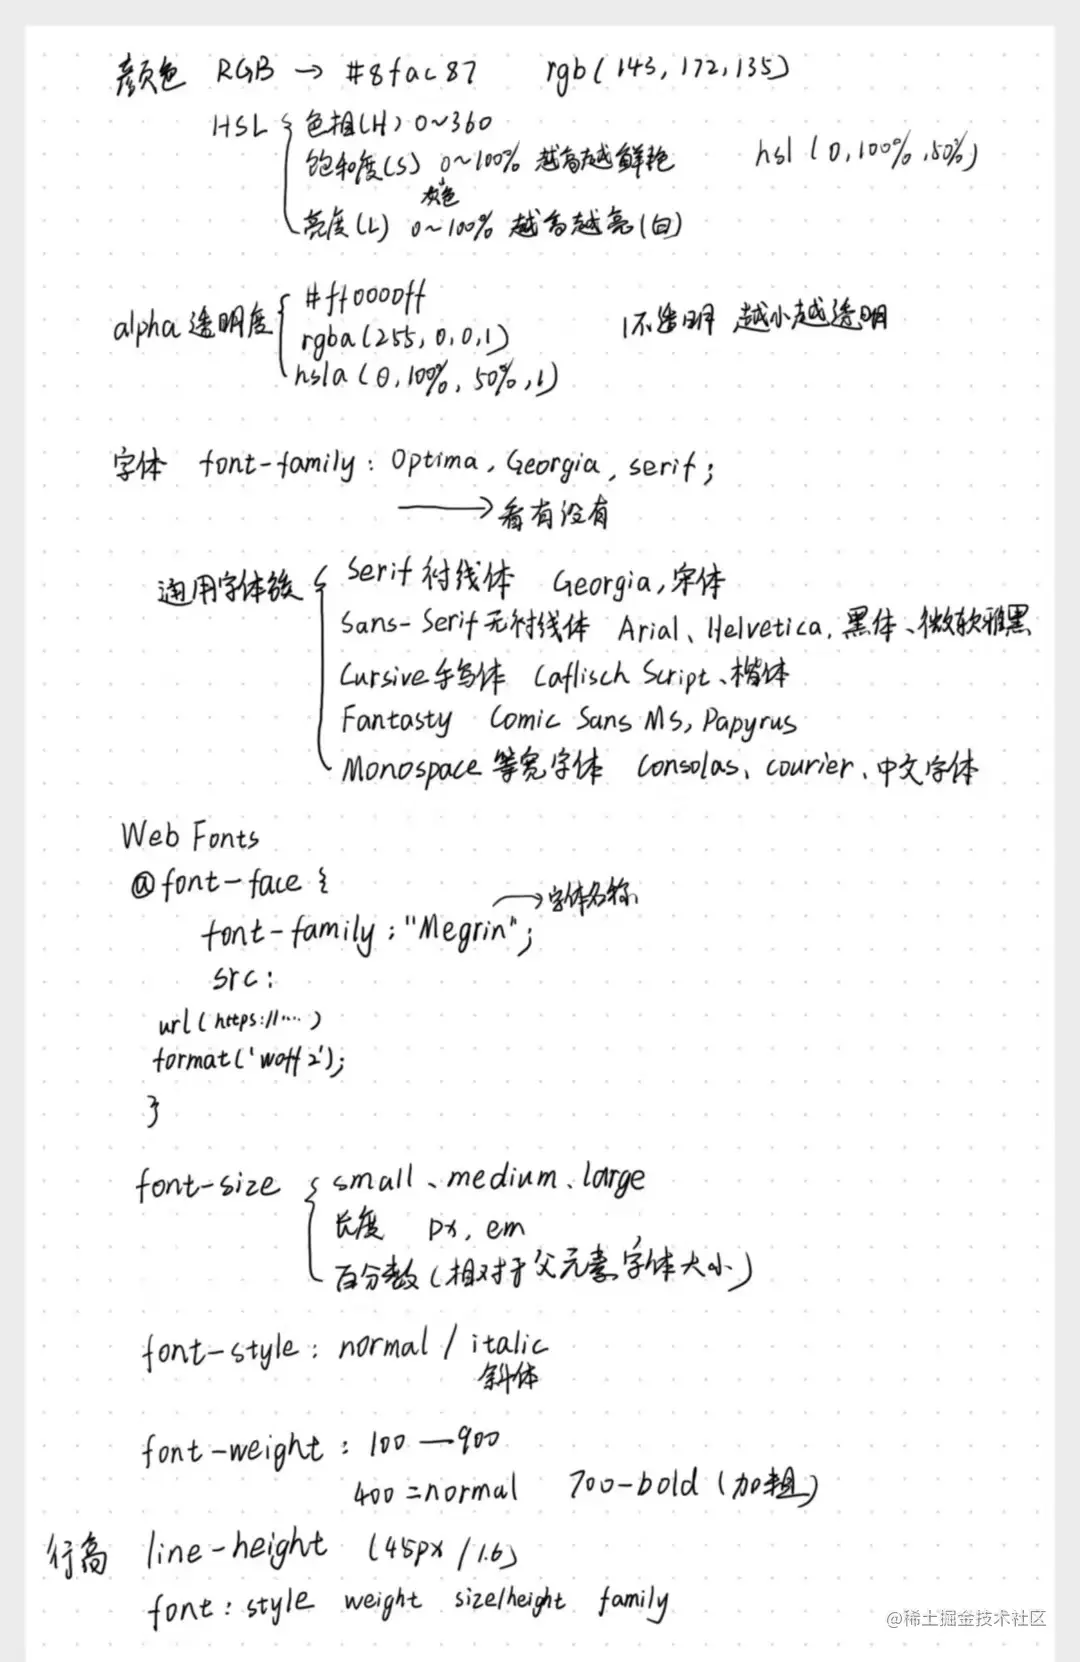 颜色 RGB → #8fac87 rgb(143,172,135)
HSL { 色相(H) 0~360
饱和度(S) 0~100% 越高越鲜艳 hsl(0,100%,50%)
灰色
亮度(L) 0~100% 越高越亮(白)
alpha 透明度 { #ff0000ff
rgba(255,0,0,1) 1不透明 越小越透明
hsla(0,100%,50%,1)
字体 font-family: Optima, Georgia, serif;
→ 看有没有
通用字体族 { Serif 衬线体 Georgia,宋体
Sans-Serif 无衬线体 Arial、Helvetica,黑体、微软雅黑
Cursive 手写体 Caflisch Script、楷体
Fantasty Comic Sans MS, Papyrus
Monospace 等宽字体 Consolas、Courier、中文字体
Web Fonts
@font-face {
→字体名称
font-family: "Megrin";
src:
url(https://....)
format('woff2');
}
font-size { small、medium、large
长度 px, em
百分数(相对于父元素字体大小)
font-style: normal / italic
斜体
font-weight: 100 — 900
400=normal 700-bold (加粗)
行高 line-height (45px / 1.6)
font: style weight size/height family
@稀土掘金技术社区